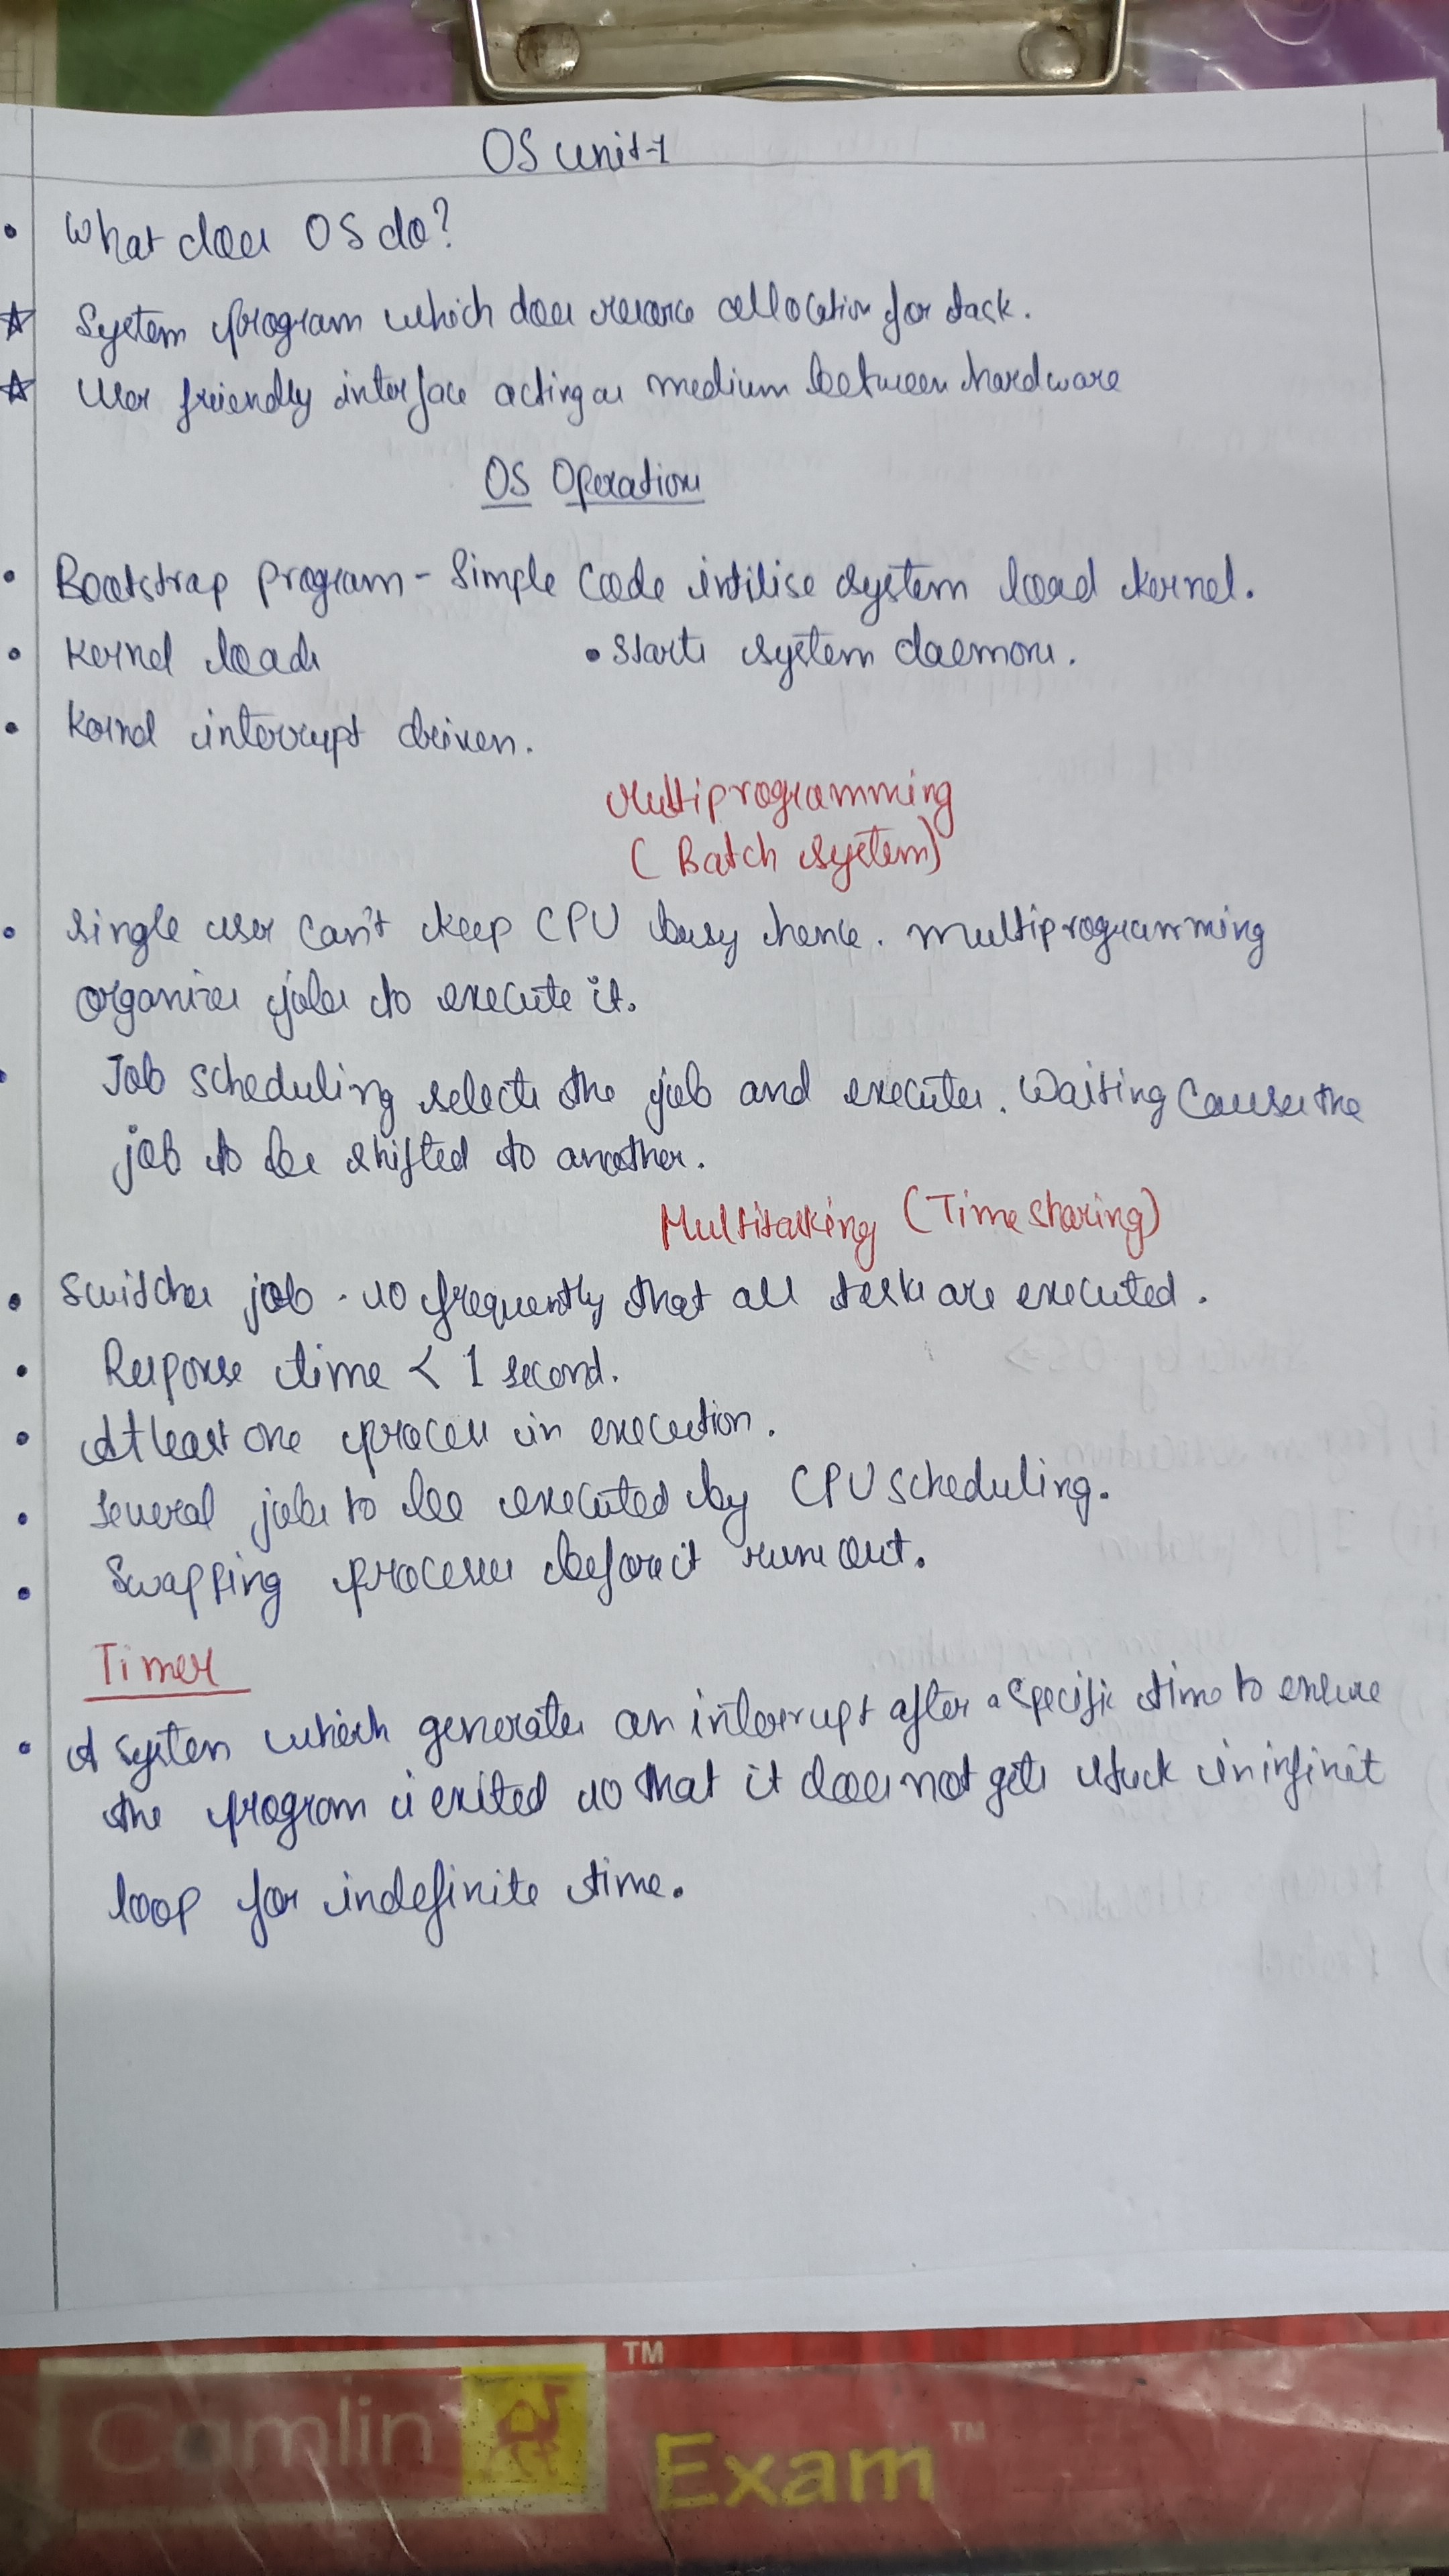 OS unit-1
• What does OS do?
☆ System program which does resource allocation for task.
☆ User friendly interface acting as medium between hardware
OS Operations
• Bootstrap program - Simple code intilise system load kernel.
• Kernel loads • starts system daemons.
• Kernel interrupt driven.
Multiprogramming
(Batch system)
• Single user can't keep CPU busy hence. multiprogramming
organizes jobs to execute it.
• Job scheduling selects the job and executes. Waiting causes the
job to be shifted to another.
Multitasking (Time sharing)
• Switches job so frequently that all tasks are executed.
• Response time < 1 second.
• Atleast one process in execution.
• Several jobs to be executed by CPU scheduling.
• Swapping processes before it runs out.
Timer
• A system which generates an interrupt after a specific time to ensure
the program is exited so that it does not gets stuck in infinit
loop for indefinite time.
TM
Camlin
Exam TM